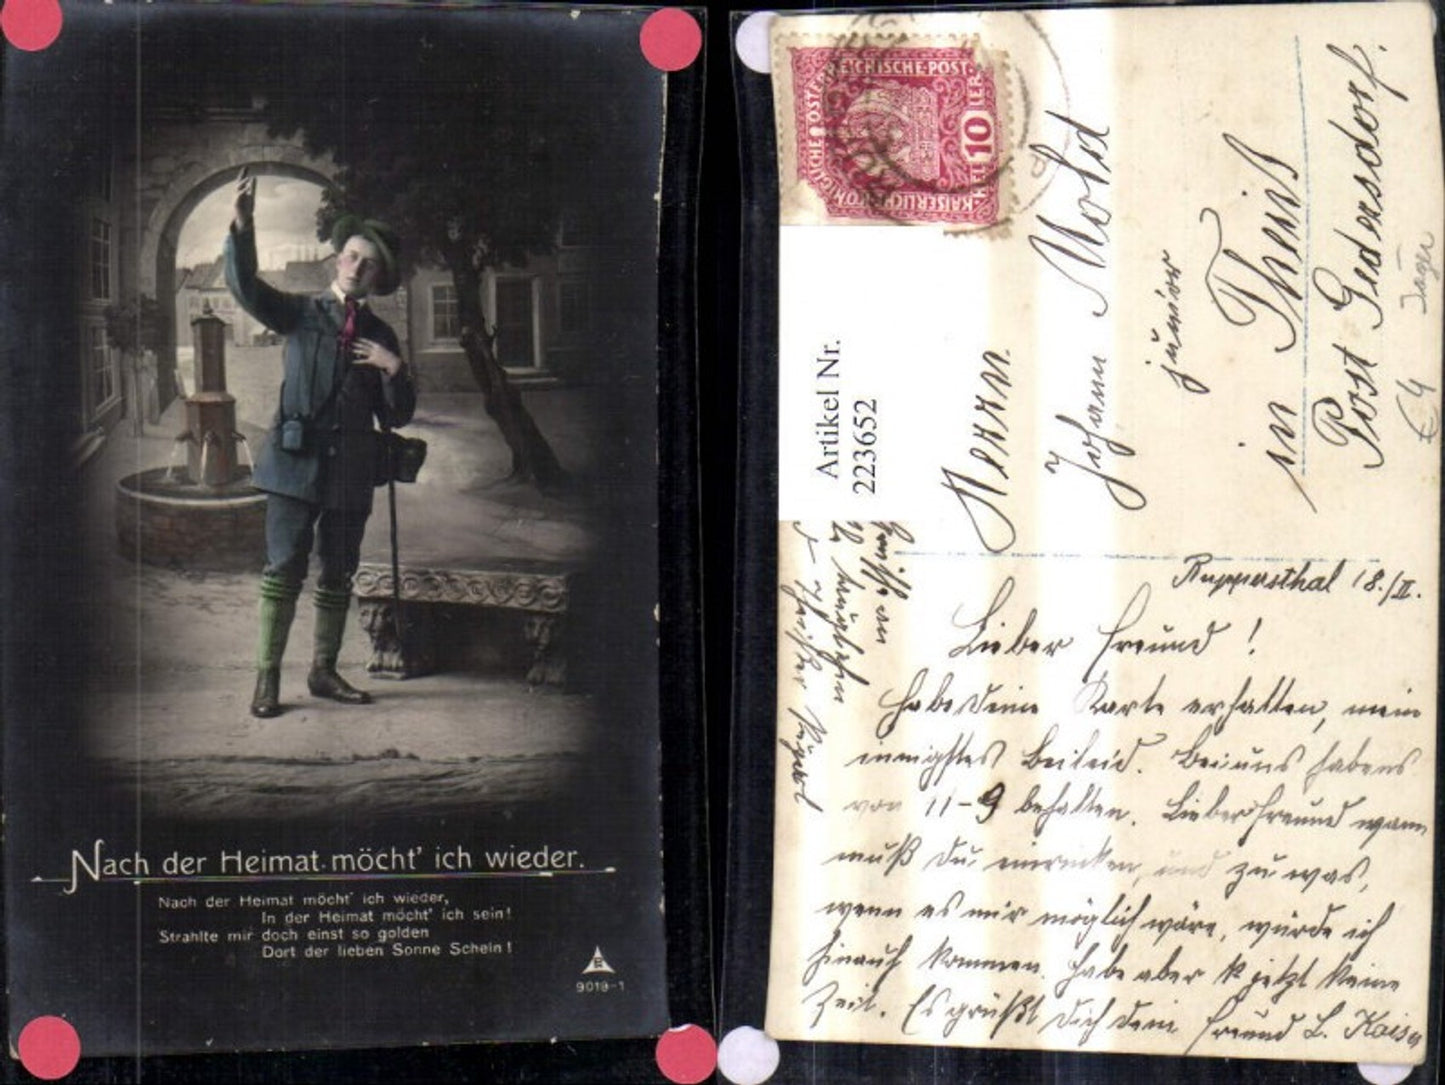 Nach der Heimat möcht' ich wieder.
Nach der Heimat möcht' ich wieder,
In der Heimat möcht' ich sein!
Strahlte mir doch einst so golden
Dort der lieben Sonne Schein!
9019-1
KAISERLICHE KÖNIGLICHE ÖSTERREICHISCHE POST
10 HELLER
Artikel Nr.
223652
Herrn
Johann Mold
junior
in Theiß
Post Gedersdorf.
Jäger
€ 4
Ruppersthal 18./II.
Lieber Freund!
Habe Deine Karte erhalten, mein
innigstes Beileid. Bei uns habens
von 11-9 behalten. Lieber Freund wann
mußt du einrücken, und zu was,
wenn es mir möglich wäre, würde ich
hinauf kommen. Habe aber jetzt keine
Zeit. Es grüßt Dich dein Freund L. Kaiser